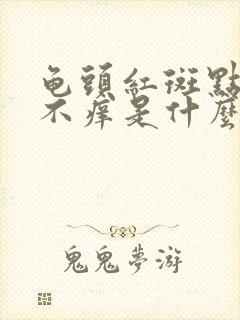 龟頭紅斑點
不癢是什麼
鬼鬼夢游